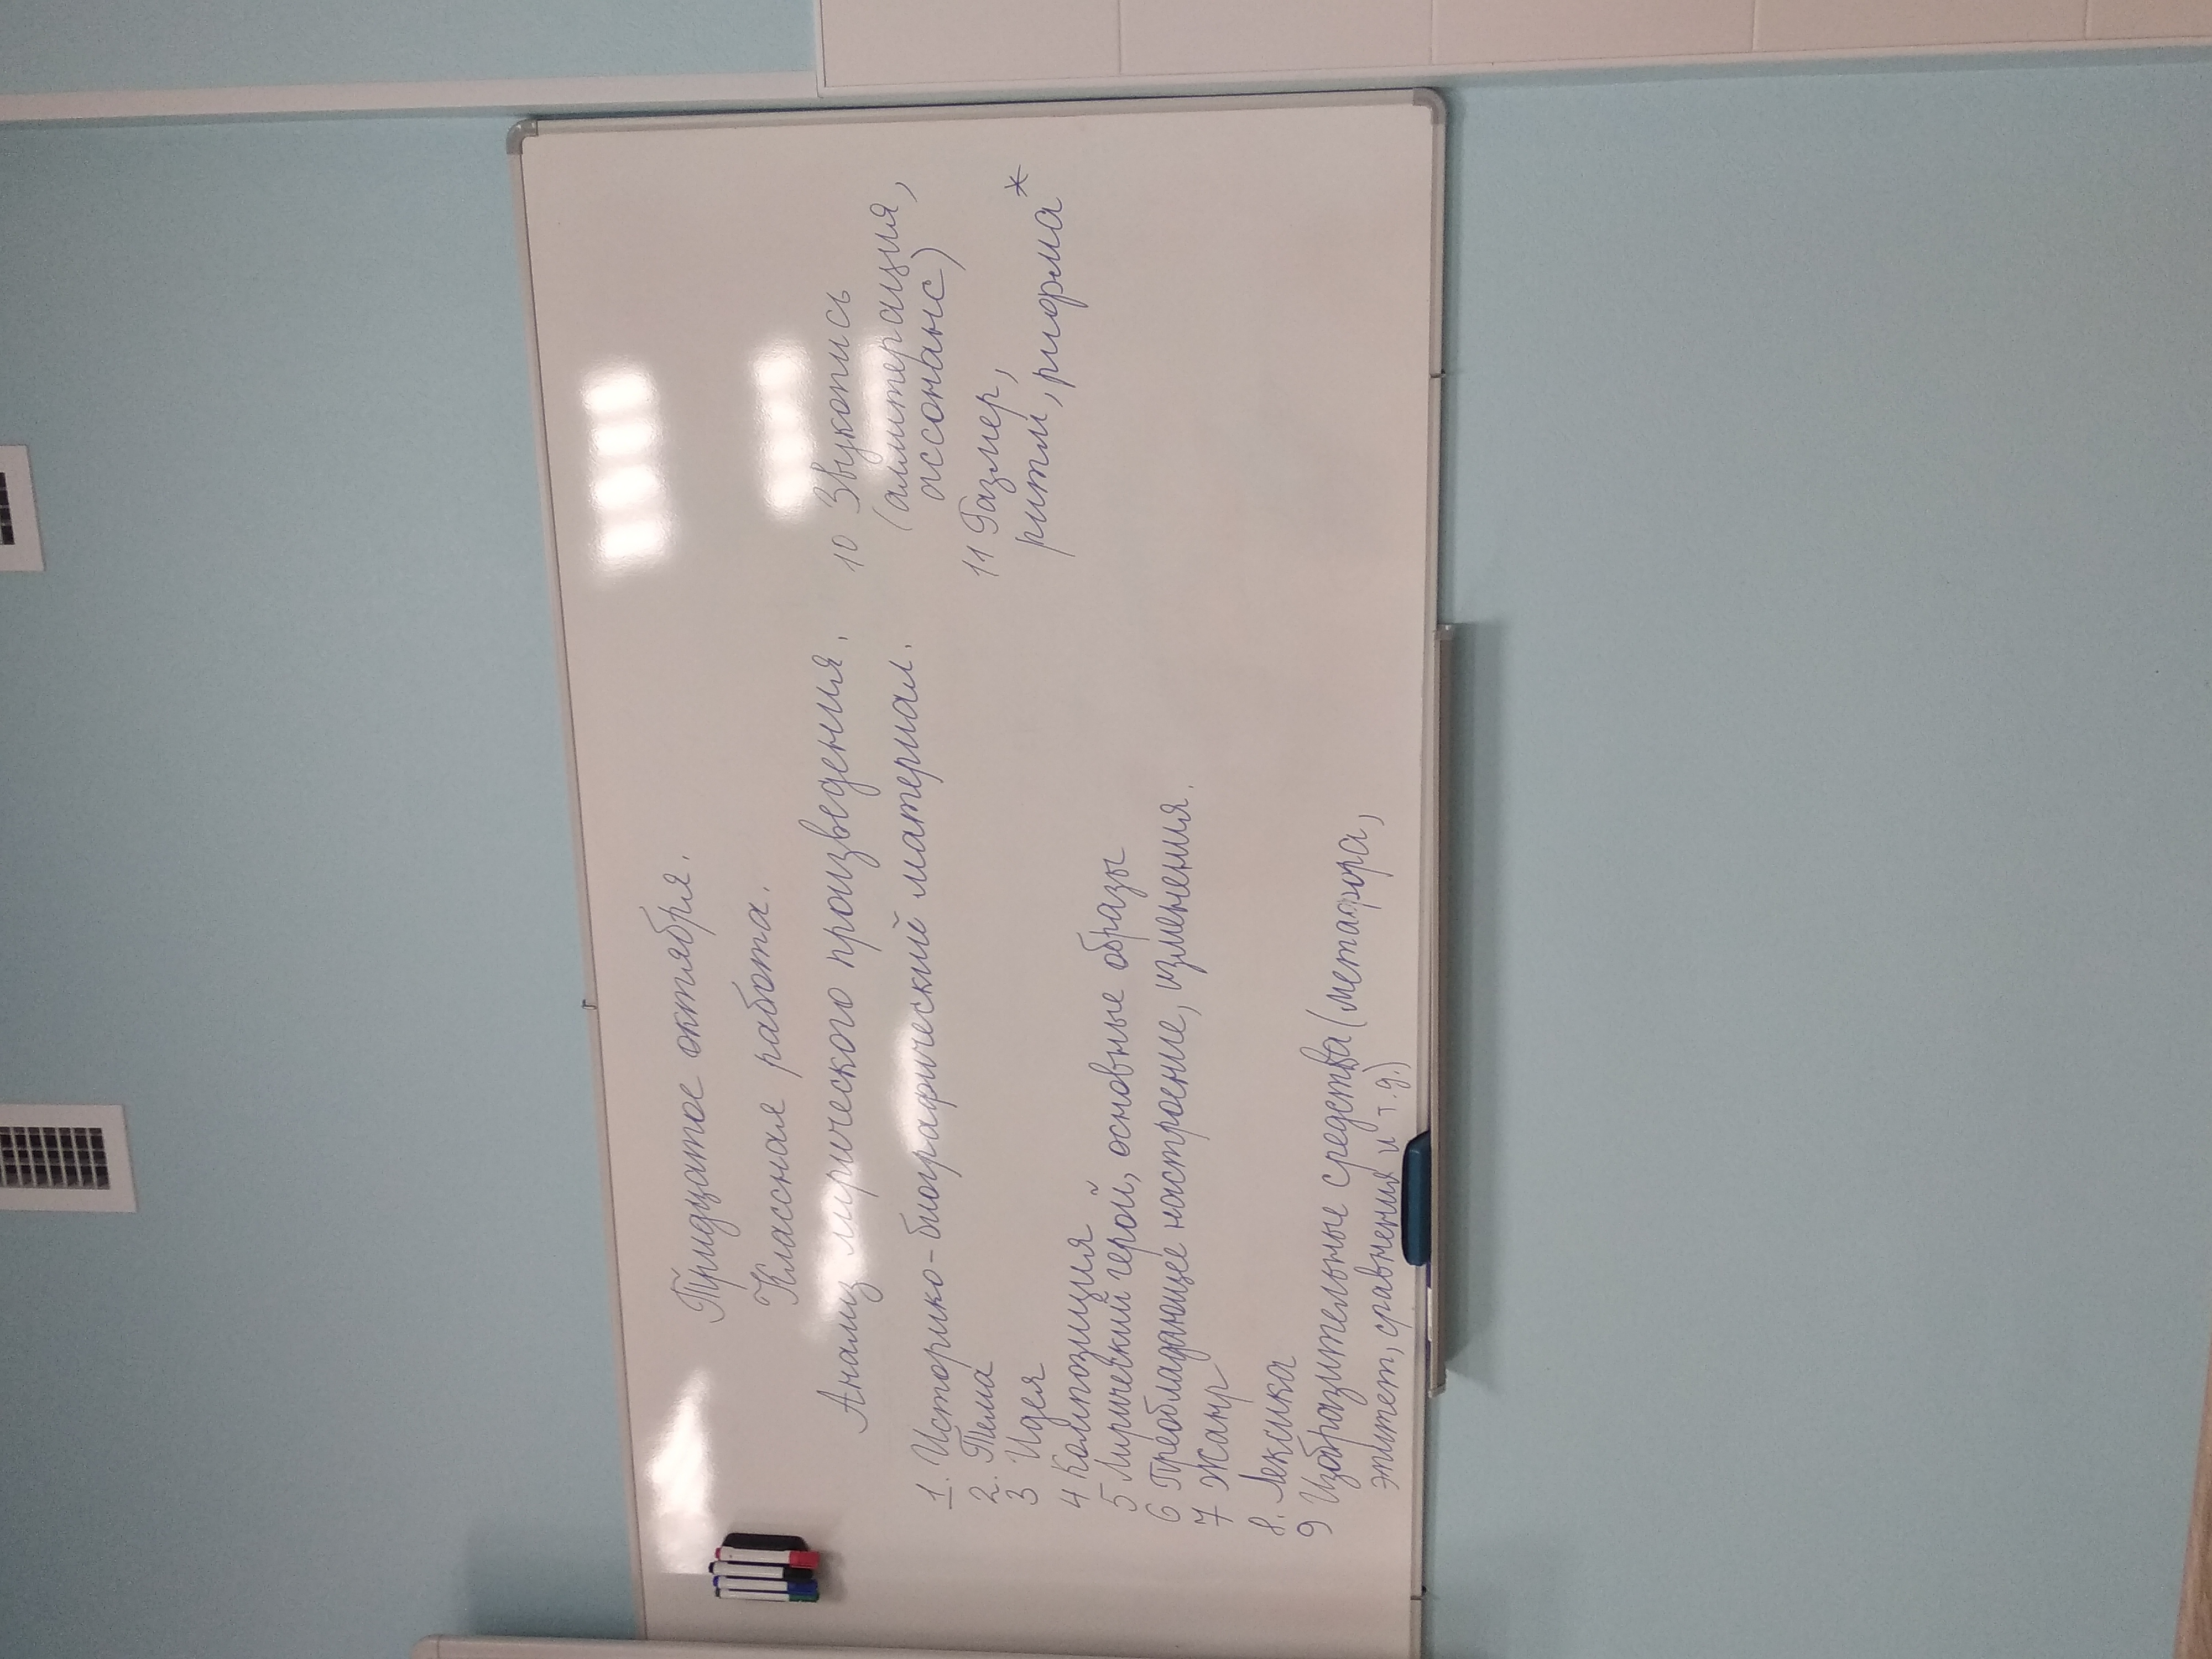 Тридцатое октября.
Классная работа.
Анализ лирического произведения.
1. Историко-биографический материал.
2. Тема
3 Идея
4 Композиция
5 Лирический герой, основные образы
6 Преобладающее настроение, изменения.
7 Жанр
8. Лексика
9 Изобразительные средства (метафора,
эпитет, сравнения и т.д.)
10 Звукопись
(аллитерация,
ассонанс)
11 Размер,
ритм, рифма*